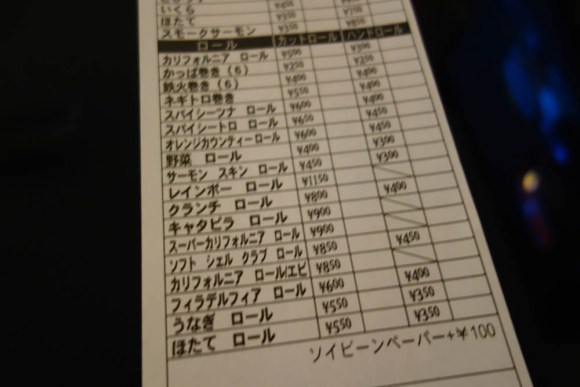 いくら ¥450
ほたて ¥350
スモークサーモン ¥350
ロール カットロール ハンドロール
カリフォルニア ロール ¥500 ¥300
かっぱ巻き（6） ¥250 ¥250
鉄火巻き（6） ¥400 ¥400
ネギトロ巻き ¥550 ¥400
スパイシーツナ ロール ¥600 ¥400
スパイシートロ ロール ¥650 ¥450
オレンジカウンティーロール ¥600 ¥400
野菜 ロール ¥400 ¥300
サーモン スキン ロール ¥450 ¥300
レインボー ロール ¥1150
クランチ ロール ¥800 ¥400
キャタピラ ロール ¥900
スーパーカリフォルニア ロール ¥900
ソフト シェル クラブ ロール ¥850 ¥450
カリフォルニア ロール/エビ ¥850
フィラデルフィア ロール ¥600 ¥400
うなぎ ロール ¥550 ¥350
ほたて ロール ¥550 ¥350
ソイビーンペーパー+¥100